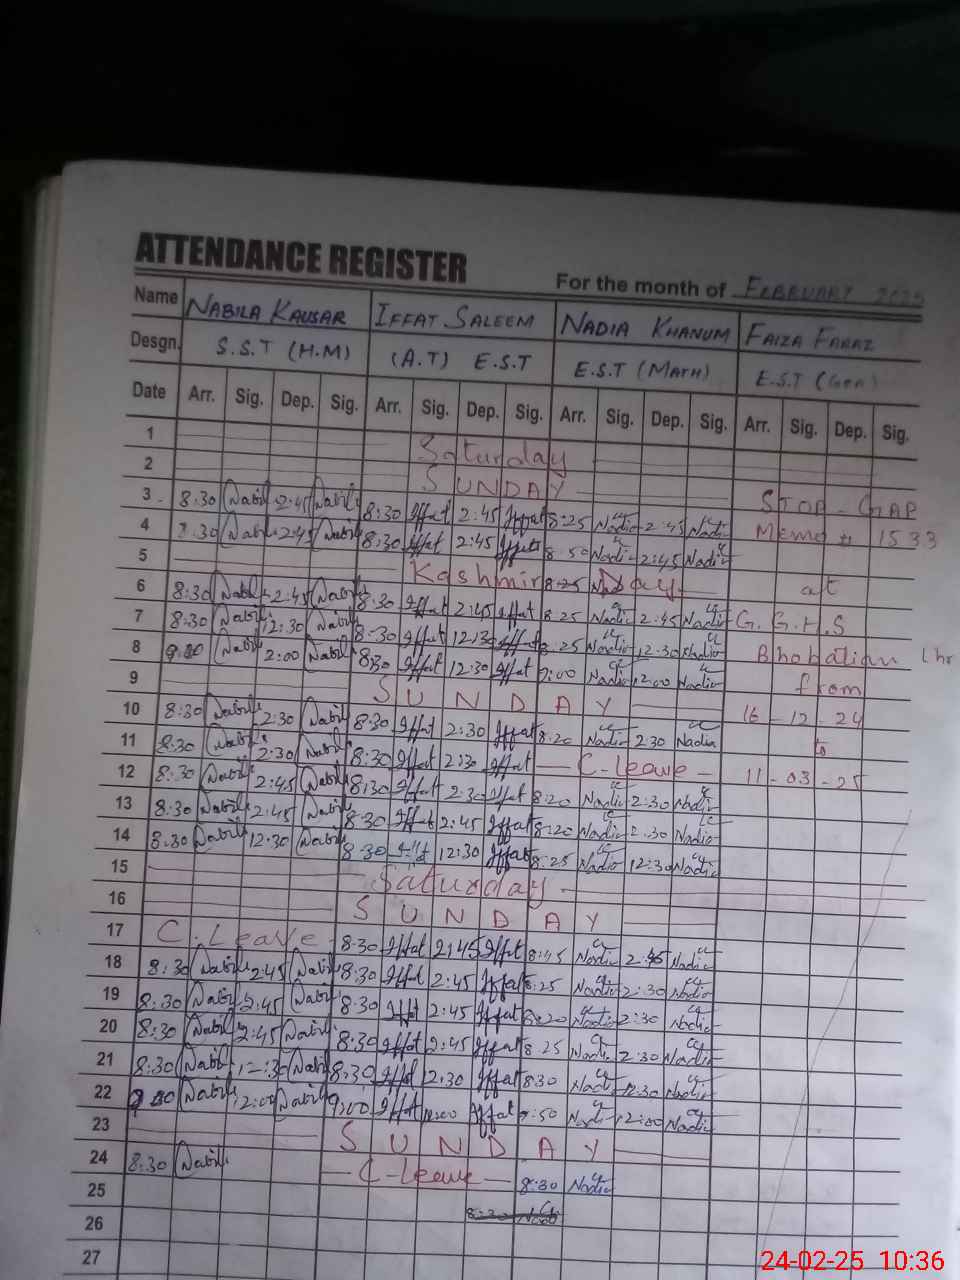 ATTENDANCE REGISTER
For the month of FEBRUARY 2025
Name NABILA KAUSAR IFFAT SALEEM NADIA KHANUM FAIZA FARAZ
Desgn. S.S.T (H.M) (A.T) E.S.T E.S.T (MATH) E.S.T (Gen)
Date Arr. Sig. Dep. Sig. Arr. Sig. Dep. Sig. Arr. Sig. Dep. Sig. Arr. Sig. Dep. Sig.
1 Saturday
2 SUNDAY
3 8:30 Nabila 2:45 Nabila 8:30 Iffat 2:45 Iffat 8:25 Nadia 2:45 Nadia STOP-GAP
4 8:30 Nabila 2:45 Nabila 8:30 Iffat 2:45 Iffat 8:50 Nadia 2:45 Nadia Memo # 1533
5 Kashmir Day at
6 8:30 Nabila 2:45 Nabila 8:30 Iffat 2:45 Iffat 8:25 Nadia 2:45 Nadia G.G.H.S
7 8:30 Nabila 12:30 Nabila 8:30 Iffat 12:30 Iffat 8:25 Nadia 12:30 Nadia Bhobatian Lhr
8 9:00 Nabila 2:00 Nabila 8:30 Iffat 12:30 Iffat 9:00 Nadia 12:00 Nadia from
9 SUNDAY 16-12-24
10 8:30 Nabila 2:30 Nabila 8:30 Iffat 2:30 Iffat 8:20 Nadia 2:30 Nadia to
11 8:30 Nabila 2:30 Nabila 8:30 Iffat 2:30 Iffat C-leave 11-03-25
12 8:30 Nabila 2:45 Nabila 8:30 Iffat 2:30 Iffat 8:20 Nadia 2:30 Nadia
13 8:30 Nabila 2:45 Nabila 8:30 Iffat 2:45 Iffat 8:20 Nadia 2:30 Nadia
14 8:30 Nabila 12:30 Nabila 8:30 Iffat 12:30 Iffat 8:25 Nadia 12:30 Nadia
15 Saturday
16 SUNDAY
17 C.Leave 8:30 Iffat 2:45 Iffat 8:45 Nadia 2:45 Nadia
18 8:30 Nabila 2:45 Nabila 8:30 Iffat 2:45 Iffat 8:25 Nadia 2:30 Nadia
19 8:30 Nabila 2:45 Nabila 8:30 Iffat 2:45 Iffat 8:20 Nadia 2:30 Nadia
20 8:30 Nabila 2:45 Nabila 8:30 Iffat 2:45 Iffat 8:25 Nadia 2:30 Nadia
21 8:30 Nabila 12:30 Nabila 8:30 Iffat 12:30 Iffat 8:30 Nadia 12:30 Nadia
22 9:00 Nabila 12:00 Nabila 9:00 Iffat 12:00 Iffat Nadia 12:00 Nadia
23 SUNDAY
24 8:30 Nabila C-leave 8:30 Nadia
25
26
27
24-02-25 10:36